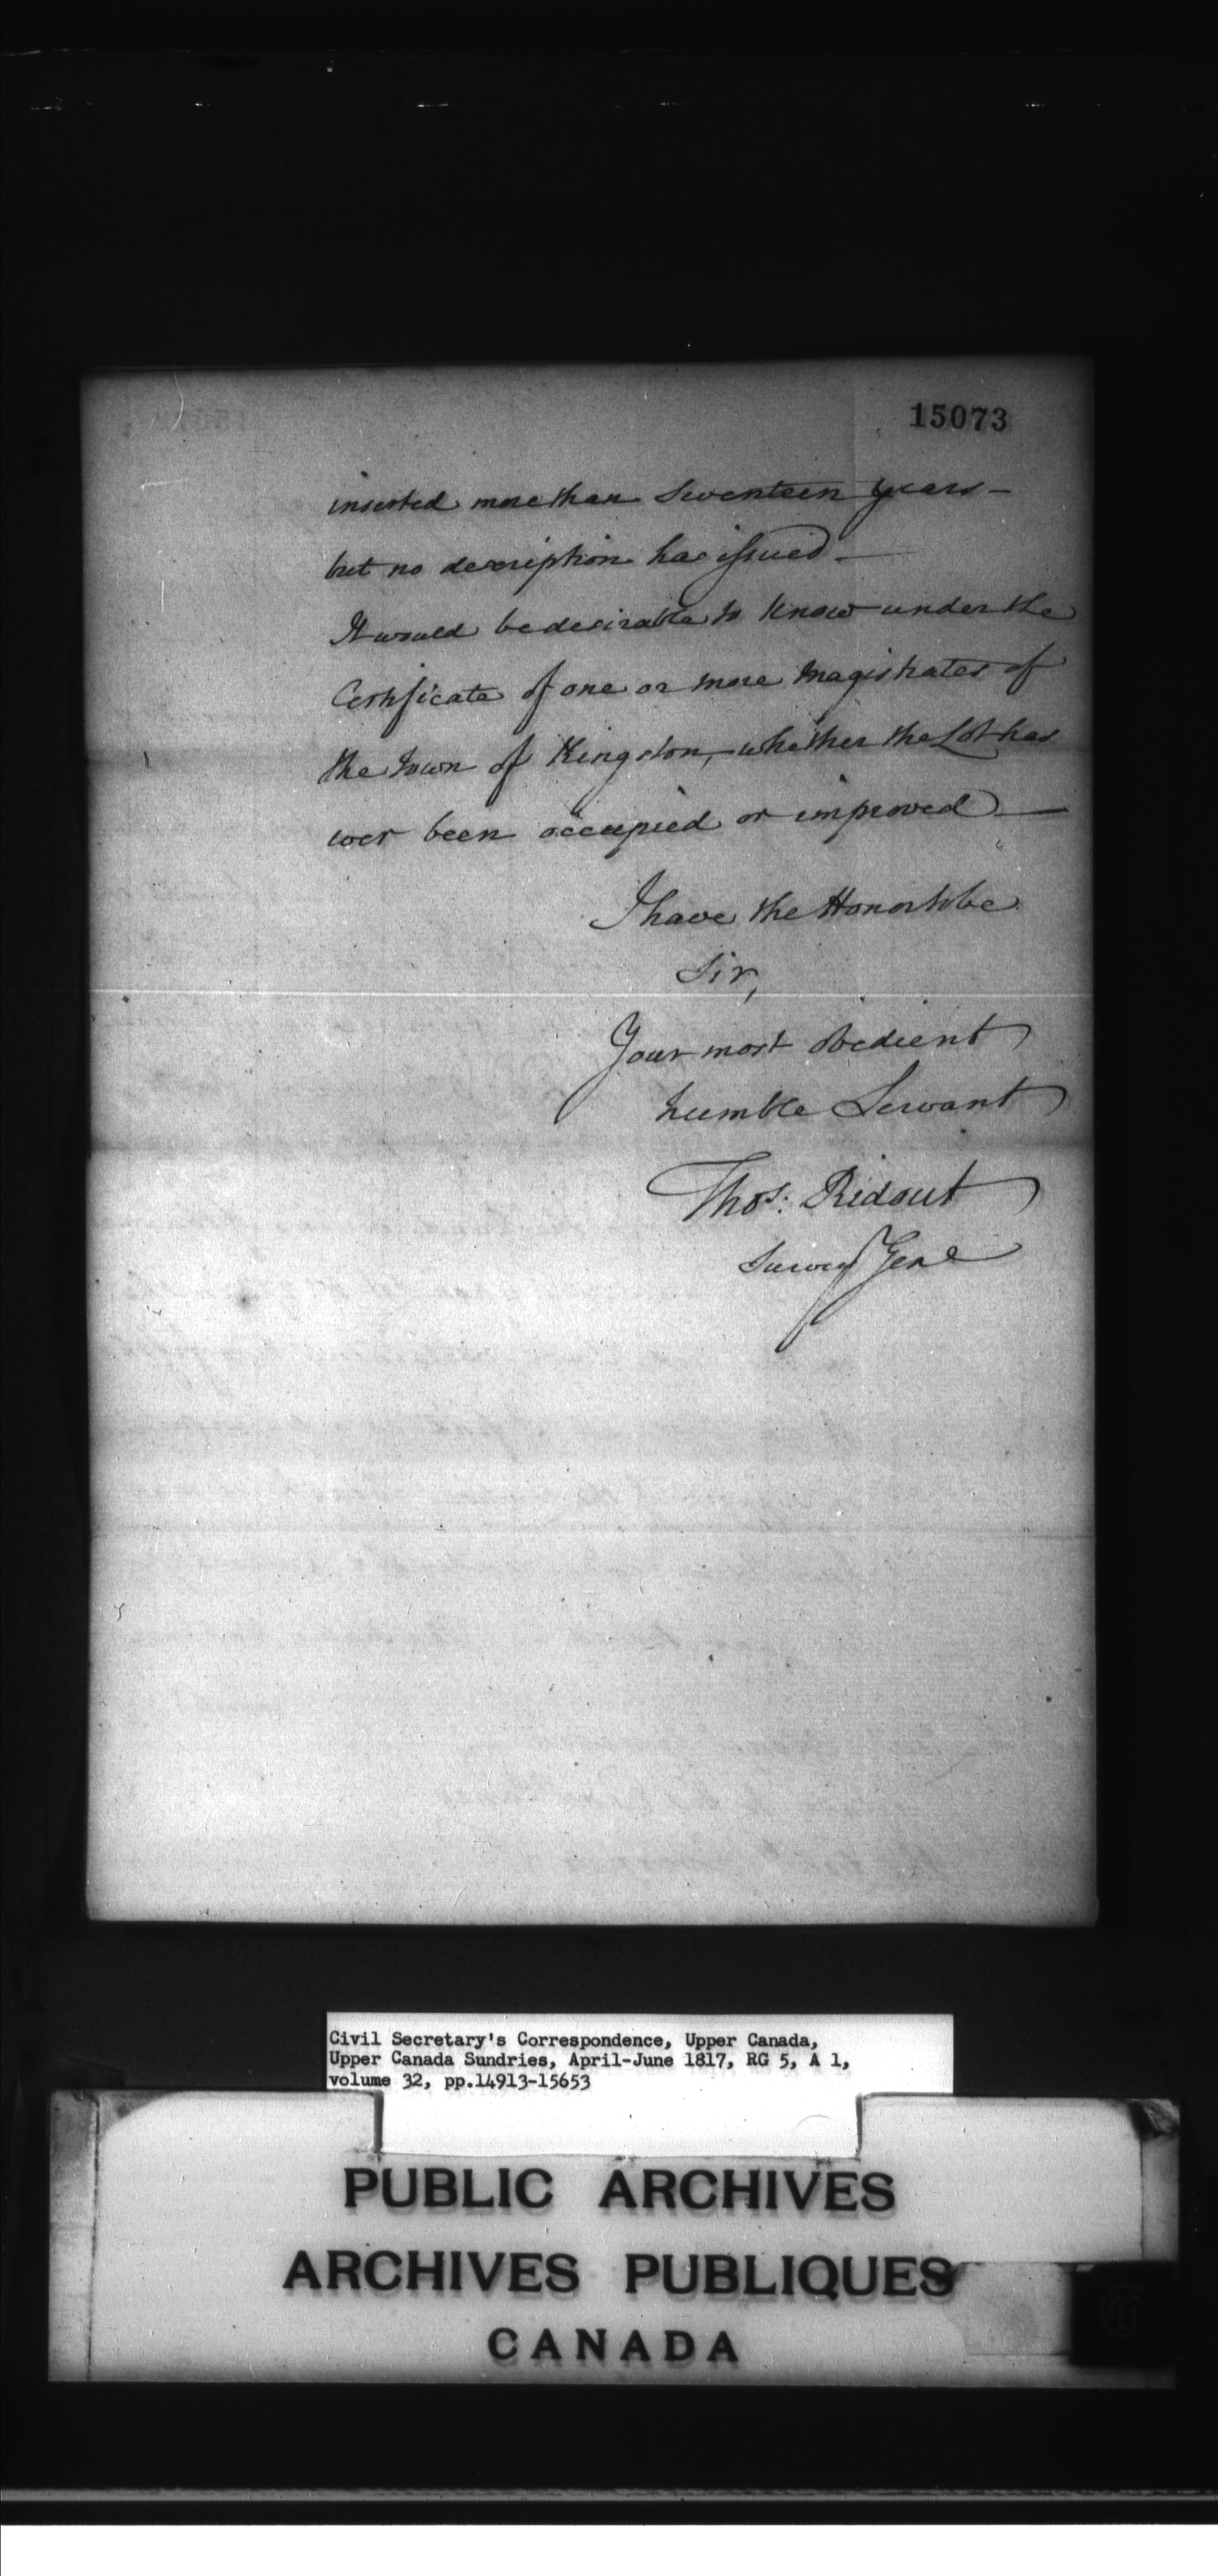 15073
inserted more than Seventeen Years –
but no description has issued –
It would be desirable to know under the
Certificate of one or more Magistrates of
the Town of Kingston, whether the Lot has
ever been occupied or improved –
I have the Honor to be
Sir,
Your most obedient
humble Servant
Thos: Ridout
Survey Genl
Civil Secretary's Correspondence, Upper Canada,
Upper Canada Sundries, April-June 1817, RG 5, A 1,
volume 32, pp.14913-15653
PUBLIC ARCHIVES
ARCHIVES PUBLIQUES
CANADA